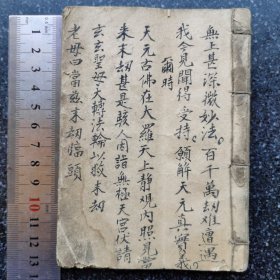 無上甚深微妙法百千萬劫難遭遇
我今見聞得受持願解天元真實義
爾時
天元古佛在大羅天上靜觀內照見當
來末劫甚是駭人因詣無極天宮伏請
玄玄聖母大轉法輪以救末劫
老母曰當茲末劫臨頭